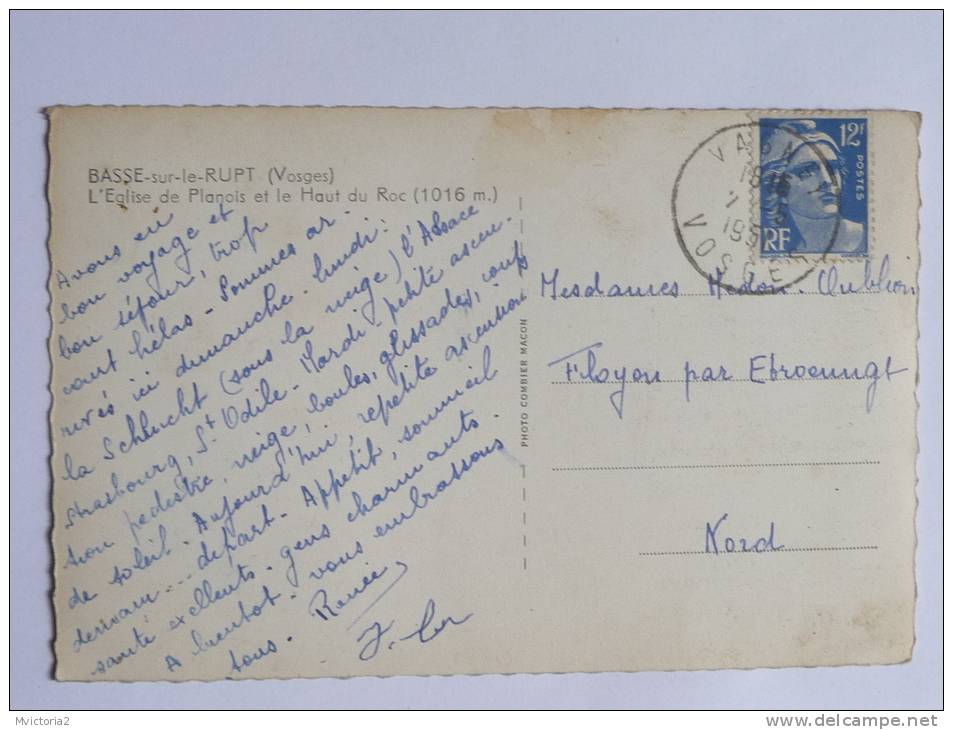 BASSE-sur-le-RUPT (Vosges)
L'Eglise de Planois et le Haut du Roc (1016 m.)
Avons eu
bon voyage et
bon séjour, trop
court hélas - Sommes ar-
rivés ici dimanche. lundi:
la Schlucht (sous la neige) l'Alsace
Strasbourg, St Odile - Mardi - petite ascen-
tion pedestre, neige, boules, glissades, coups
de soleil - Aujourd'hui, repetite ascention
demain... départ - Appetit, sommeil
santé excellents - gens charmants -
A bientot - vous embrassons
tous - Renée
PHOTO COMBIER MACON
12F
POSTES
RF
VAGNEY
18
195
VOSGES
Mesdames
Floyon par Etroeungt
Nord
Mvictoria2
delcampe.net